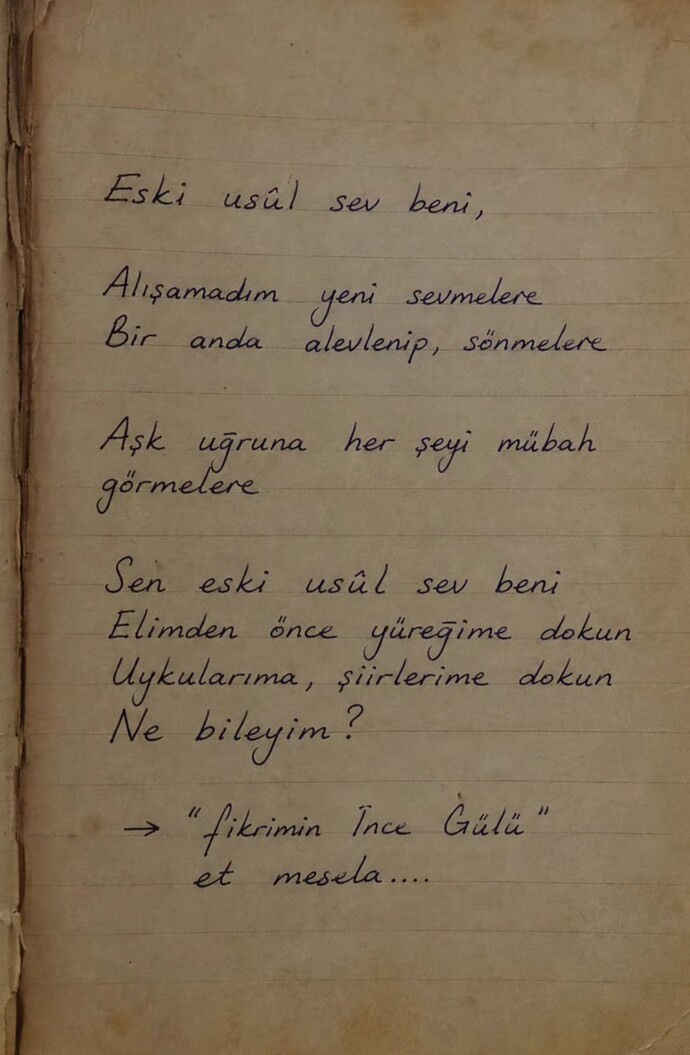 Eski usûl sev beni,
Alışamadım yeni sevmelere
Bir anda alevlenip, sönmelere
Aşk uğruna her şeyi mübah
görmelere
Sen eski usûl sev beni
Elimden önce yüreğime dokun
Uykularıma, şiirlerime dokun
Ne bileyim?
→ "fikrimin İnce Gülü"
et mesela....